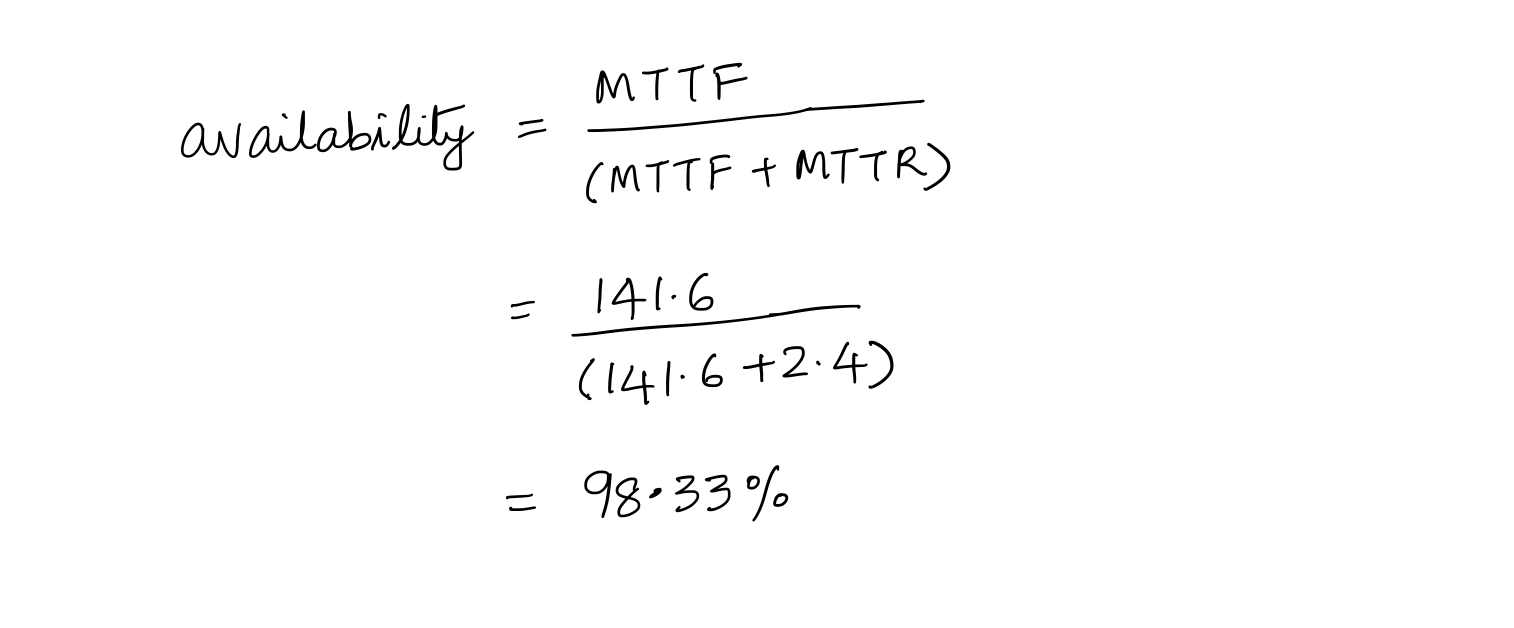 availability = MTTF / (MTTF + MTTR)
= 141.6 / (141.6 + 2.4)
= 98.33%